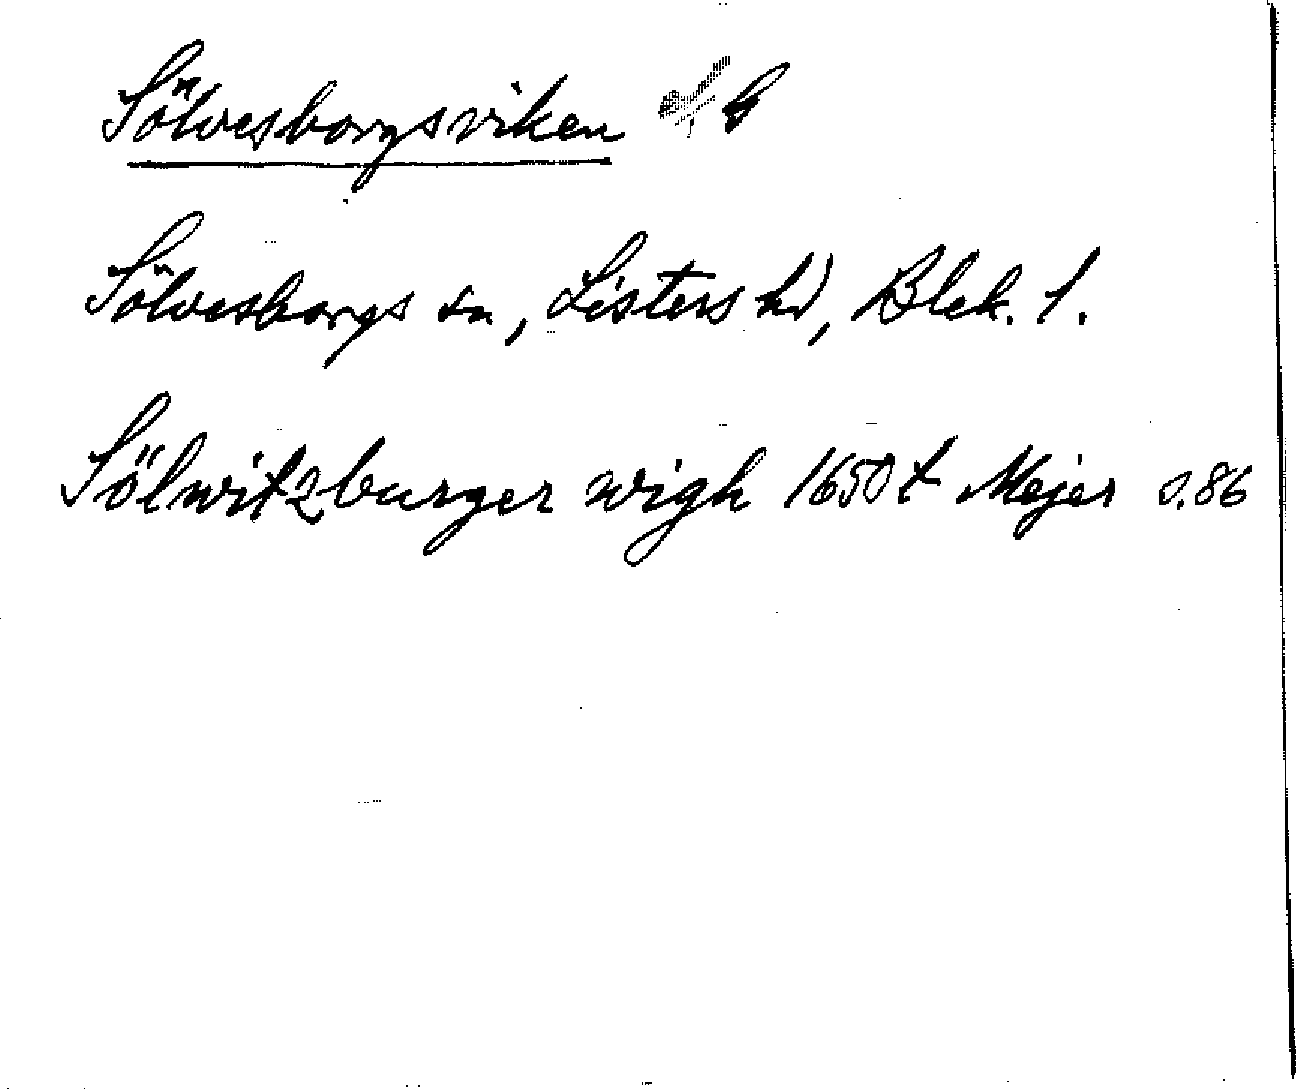 Sölvesborgsviken
Sölvesborgs sn, Listers hd, Blek. l.
Sölwitzburger wigh 1650 t Mejer s. 86